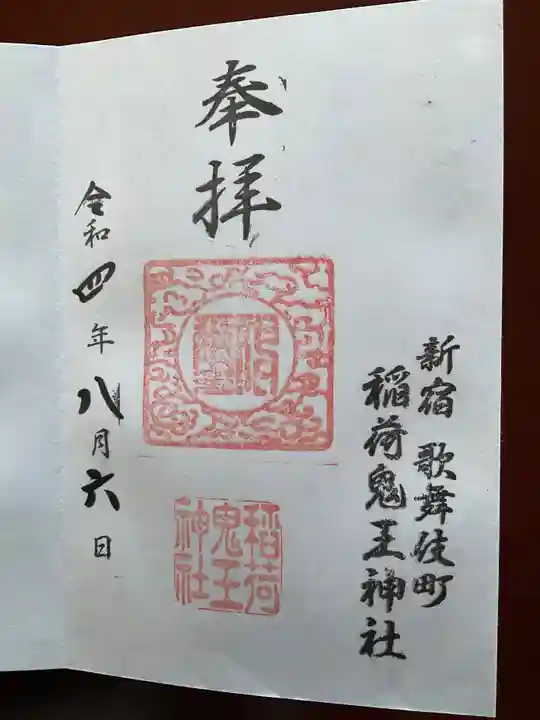 新宿 歌舞伎町
稲荷鬼王神社
奉拝
稲荷
鬼王
神社
令和四年八月六日